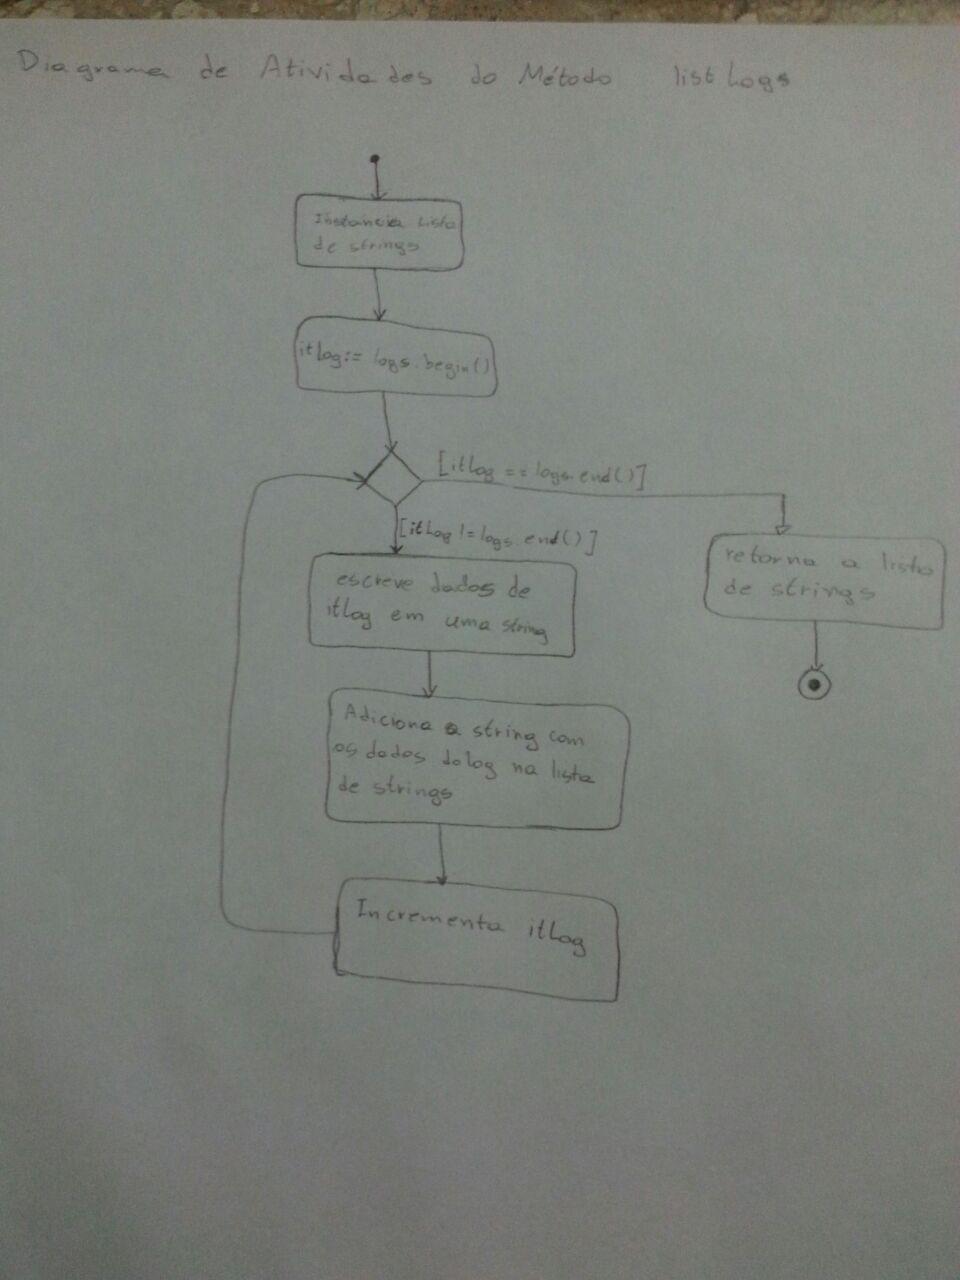 Diagrama de Atividades do Método listLogs
Instancia lista
de strings
itLog:= logs.begin()
[itLog == logs.end()]
[itLog != logs.end()]
retorna a lista
de strings
escreve dados de
itLog em uma string
Adiciona a string com
os dados do log na lista
de strings
Incrementa itLog